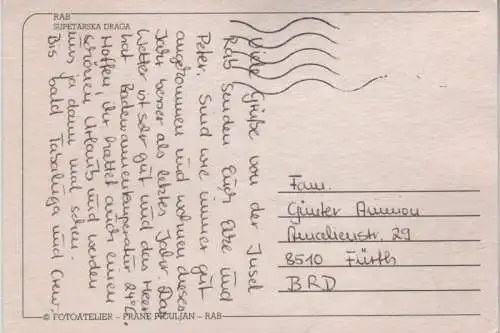 RAB
SUPETARSKA DRAGA
Viele Grüße von der Insel
Rab senden Euch Elke und
Peter. Sind wie immer gut
angekommen und wohnen dieses
Jahr besser als letztes Jahr. Das
Wetter ist sehr gut und das Meer
hat Badewannentemperatur 24°C.
Hoffen, ihr hattet auch einen
schönen Urlaub und werden
uns ja dann mal sehen.
Bis bald Tabaluga und Crew.
Fam.
Günter Ammon
Amalienstr. 29
8510 Fürth
BRD
© FOTOATELIER – FRANE PICULJAN – RAB